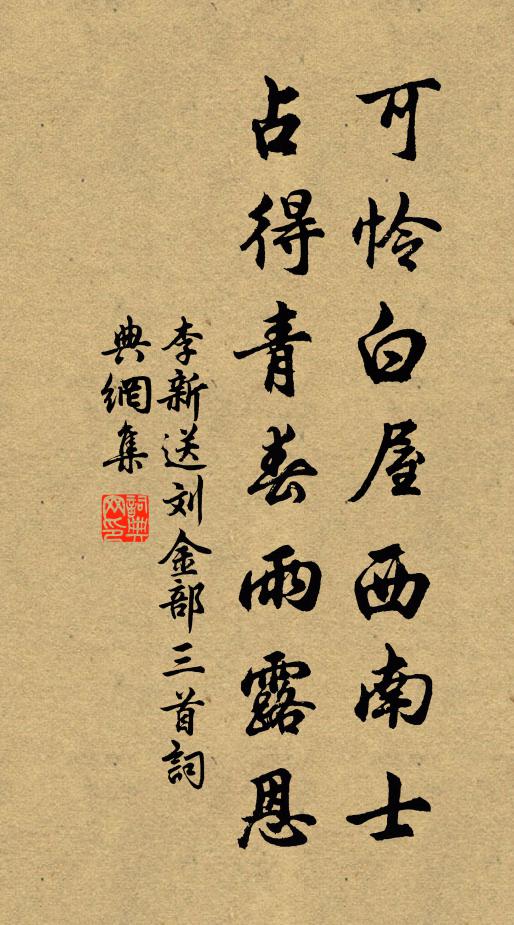 可怜白屋西南士
占得青春雨露恩
李新送刘金部三首詞
典網集
詞典
网印